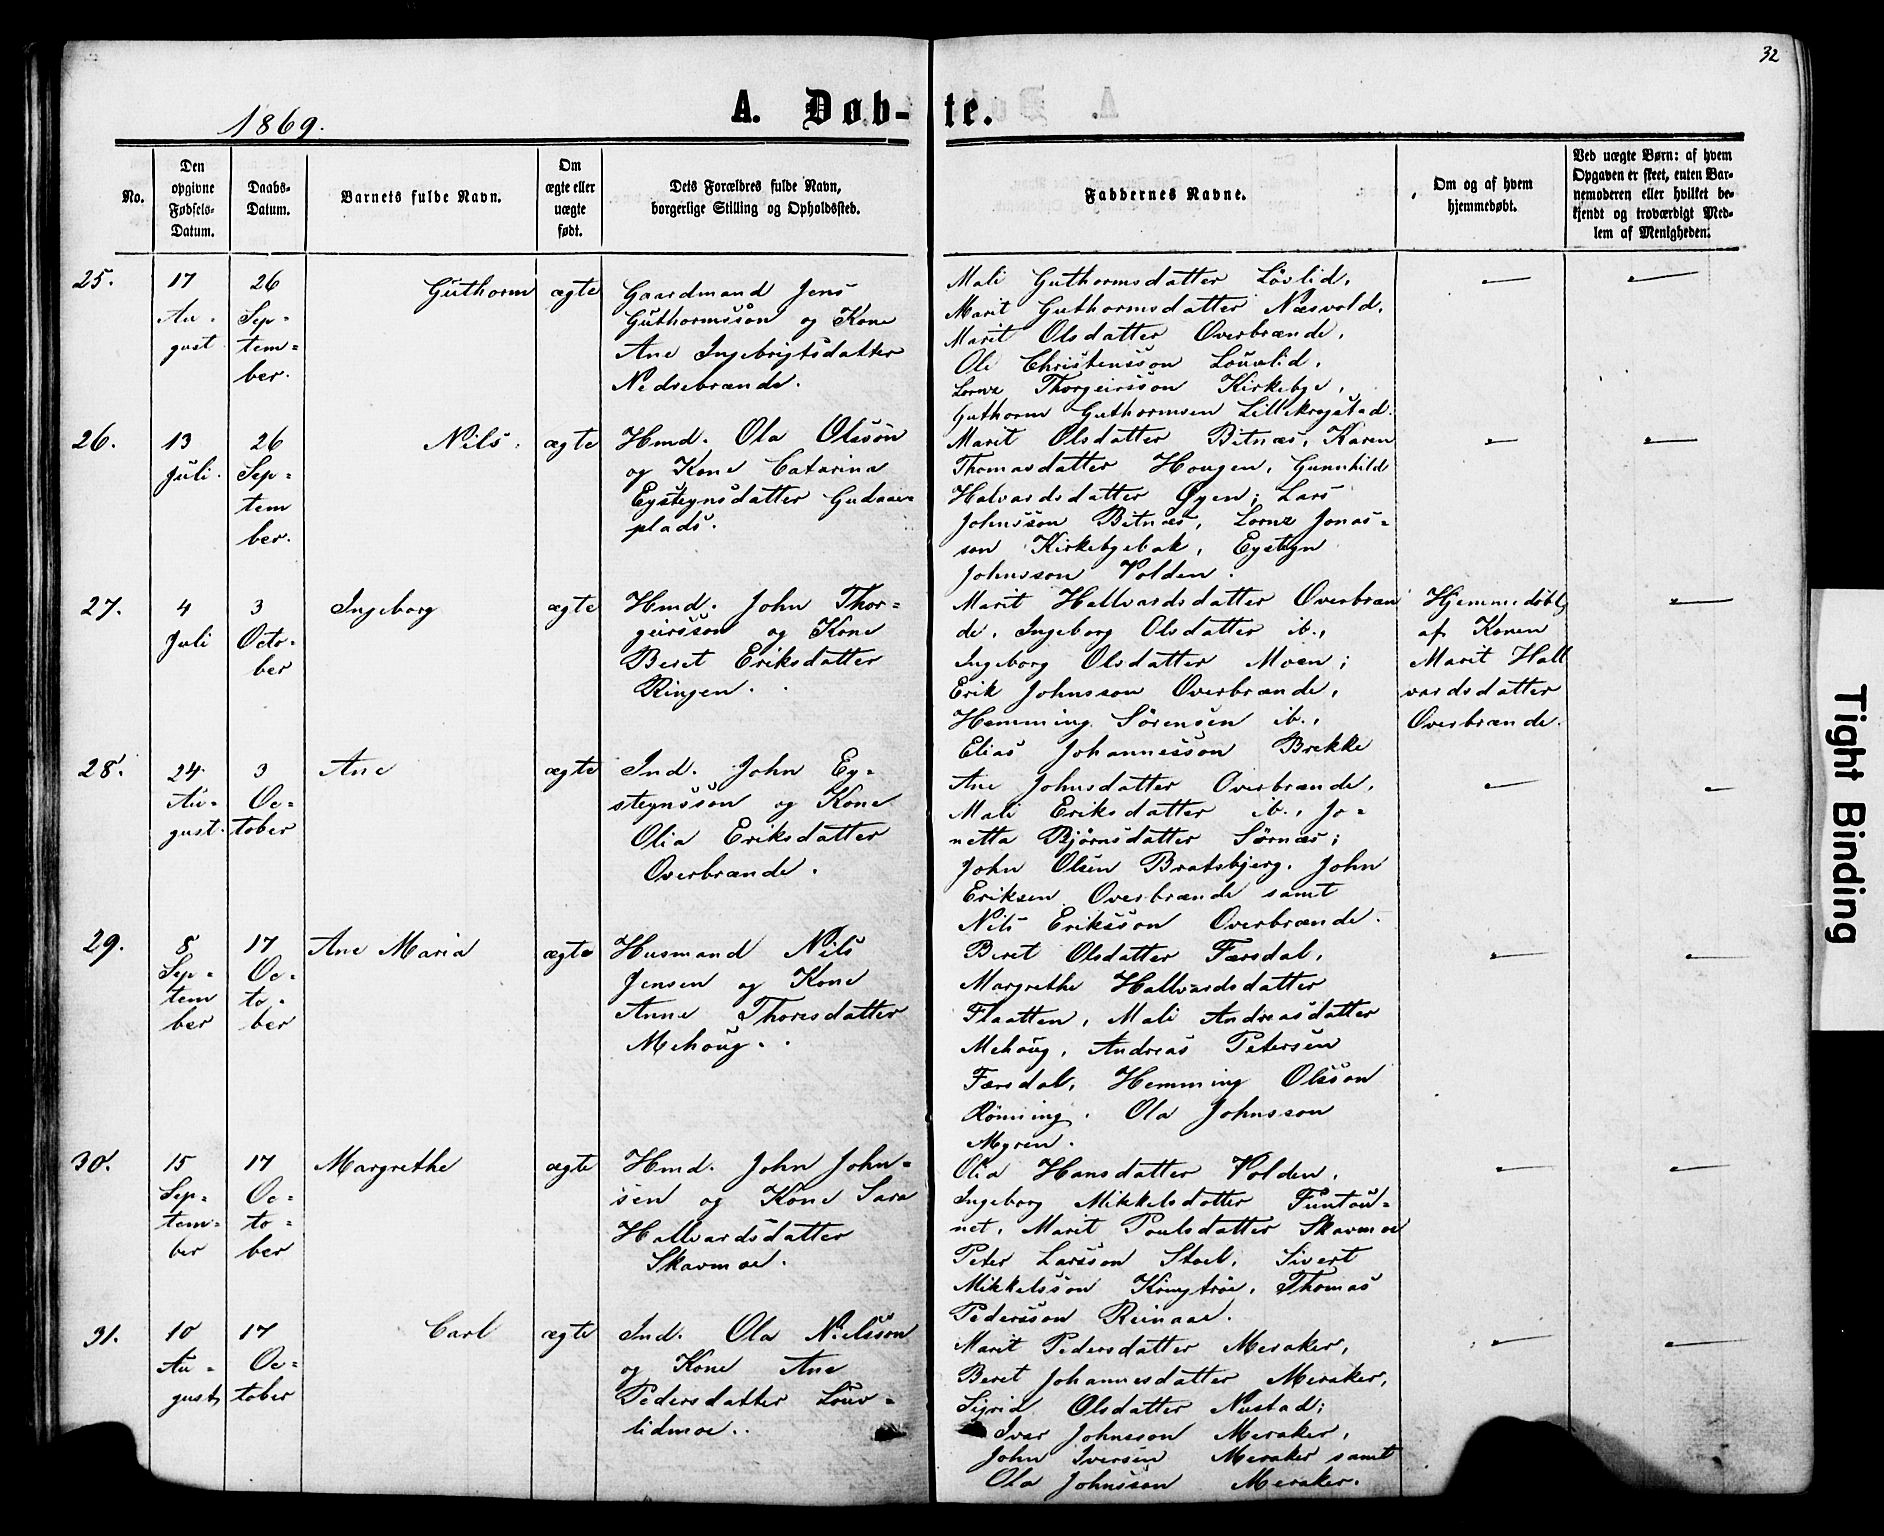 32
1869.
A. Døb-te.
No.
Den opgivne Fødsels-Datum.
Daabs-Datum.
Barnets fulde Navn.
Om ægte eller uægte født.
Dets Forældres fulde Navn, borgerlige Stilling og Opholdssted.
Faddernes Navne.
Om og af hvem hjemmedøbt.
Ved uægte Børn: af hvem Opgaven er skeet, enten Barnemoderen eller hvilket bekjendt og troværdigt Medlem af Menigheden.
25.
17
Au-
gust
26
Sep-
tem-
ber.
Guthorm
ægte
Gaardmand Jens
Guthormsson og Kone
Ane Ingebrigtsdatter
Nedrebrænde.
Mali Guthormsdatter Lövlid,
Marit Guthormsdatter Næsvold,
Marit Olsdatter Overbrænde,
Ole Christensson Louvlid,
Lornz Thorgeirsson Kirkebye,
Guthorm Guthormsen Lillekrogstad.
—
—
26.
13
Juli.
26
Sep-
tem
ber.
Nils.
ægte
Hmd. Ola Olsson
og Kone Catarina
Eysteynsdatter Gudaae-
plads.
Marit Olsdatter Bitnæs, Karen
Thomasdatter Hougen, Gunnhild
Halvardsdatter Øyen; Lars
Johnsson Bitnæs, Lornz Jonas-
son Kirkebyebak, Eysteyn
Johnsson Volden.
—
—
27.
4
Juli
3
Octo-
ber
Ingeborg
ægte
Hmd. John Thor-
geirsson og Kone
Beret Eriksdatter
Ringen.
Marit Hallvardsdatter Overbræn
de, Ingeborg Olsdatter ib.,
Ingeborg Olsdatter Moen;
Erik Johnsson Overbrænde,
Hemming Sörensen ib.,
Elias Johannesson Brekke
Hjemmedöbt
af Konen
Marit Hall
vardsdatter
Overbrænde.
—
28.
24
Au-
gust.
3
Oc-
tober
Ane
ægte
Ind. John Ey-
steynsson og Kone
Olia Eriksdatter
Overbrænde.
Ane Johnsdatter Overbrænde,
Mali Eriksdatter ib., Jo-
netta Björnsdatter Sörnæs;
John Olsen Bratsbjerg, John
Eriksen Overbrænde samt
Nils Eriksson Overbrænde.
—
—
29.
8
Sep-
tem
ber
17
Oc-
to-
ber
Ane Maria
ægte
Husmand Nils
Jensen og Kone
Anne Thoresdatter
Mehoug.
Beret Olsdatter Færsdal,
Margrethe Hallvardsdatter
Flaatten, Mali Andreasdatter
Mehoug, Andreas Petersen
Færsdal, Hemming Olsson
Rönning, Ola Johnsson
Myren.
—
—
30.
15
Sep-
tem-
ber
17
Oc-
to-
ber
Margrethe
ægte
Hmd. John John-
sen og Kone Sara
Hallvardsdatter
Skavmoe.
Olia Hansdatter Volden,
Ingeborg Mikkelsdatter Funtou-
net, Marit Poulsdatter Skavmoe
Peter Larsson Stoel, Sivert
Mikkelsson Thomas
Pedersson Reinaae.
—
—
31.
10
Au-
gust
17
Oc-
tober
Carl
ægte
Ind. Ola Nielsson
og Kone Ane
Pedersdatter Louv-
lidmoe.
Marit Pedersdatter Meraker,
Beret Johannesdatter Meraker,
Sigrid Olsdatter Nustad;
Ivar Johnsson Meraker,
John Iversen Meraker samt
Ola Johnsson Meraker.
—
—
Tight Binding